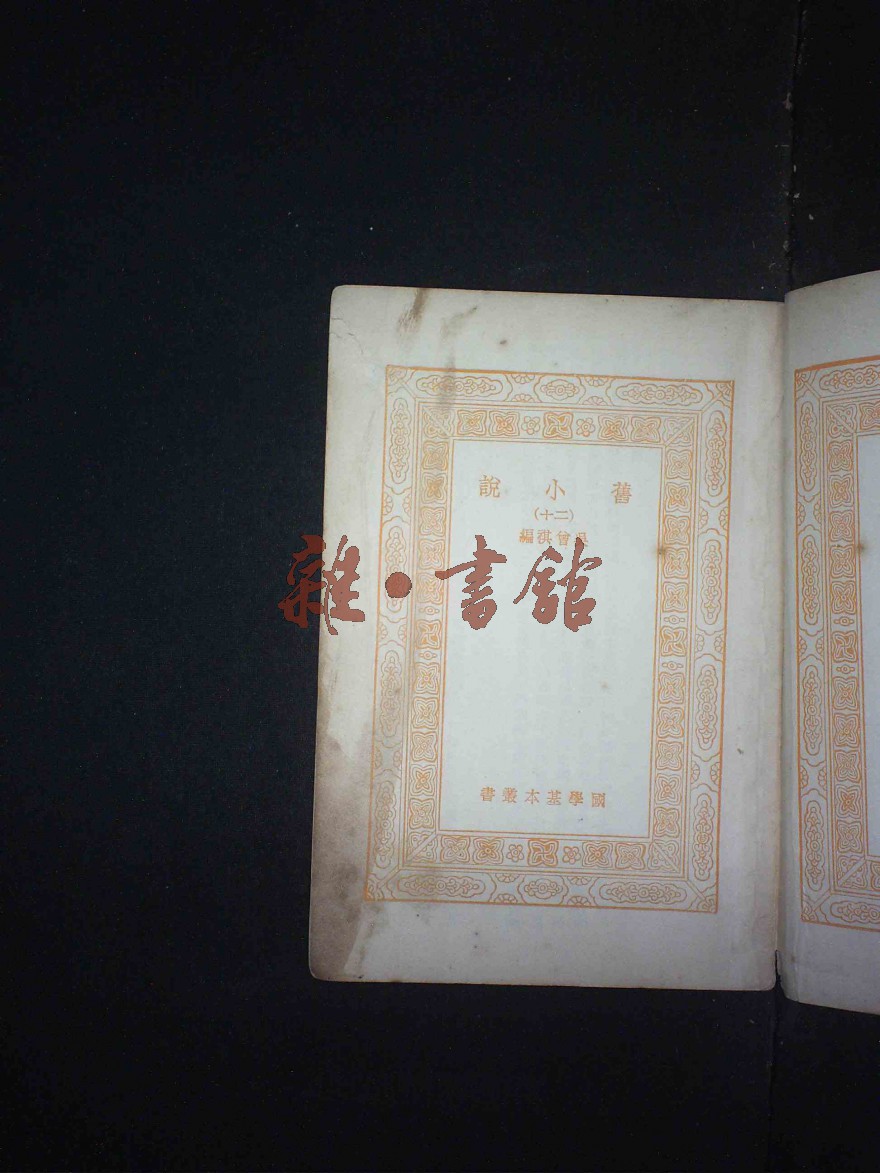 舊小說
(二十)
吳曾祺編
雜·書館
國學基本叢書